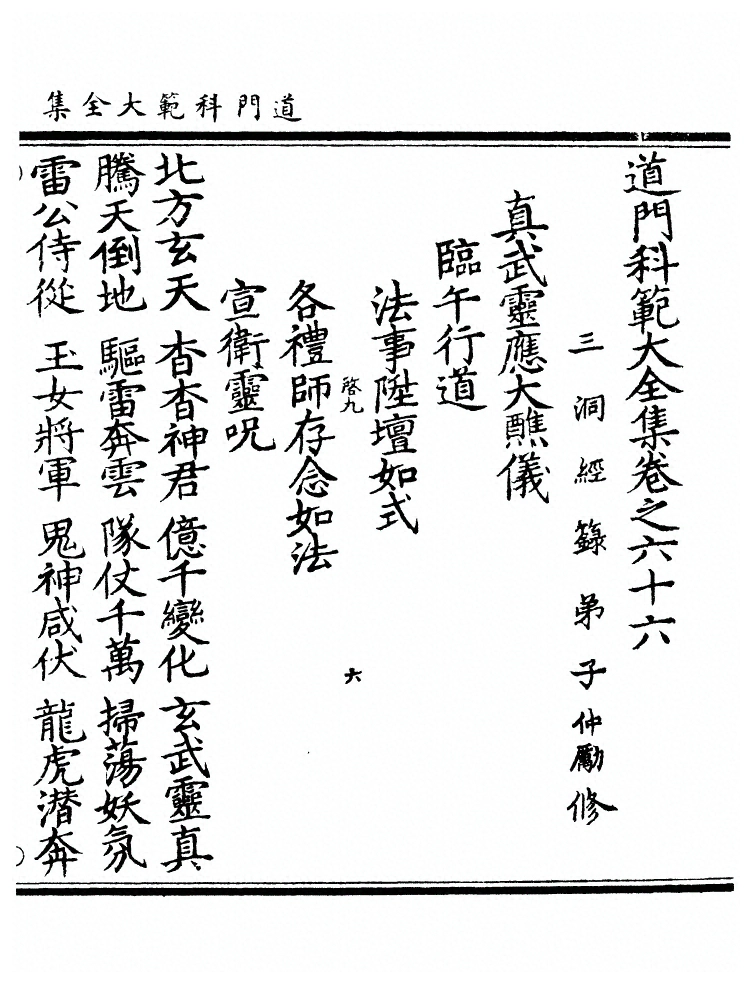 道門科範大全集
道門科範大全集卷之六十六
三洞經籙弟子仲勵修
真武靈應大醮儀
臨午行道
法事陞壇如式
啓九
六
各禮師存念如法
宣衛靈呪
北方玄天 杳杳神君 億千變化 玄武靈真
騰天倒地 驅雷奔雲 隊仗千萬 掃蕩妖氛
雷公侍從 玉女將軍 鬼神咸伏 龍虎潛奔